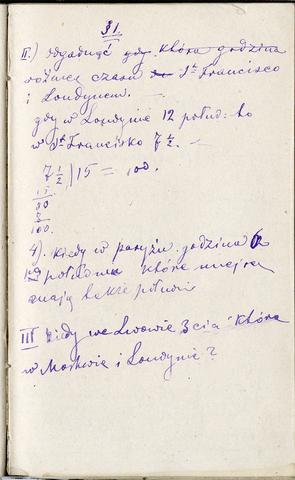 31.
II.) odgadnąć gdy która godzina
różnicę czasu St Francisco
i Londynem.
gdy w Londynie 12 połud: to
w St Francisko 7 ½. –
7 ½ | 15 = 100.
15
30
100.
4). Kiedy w paryżu godzina
południe które miejsca
mają także południe
III Kiedy we Lwowie 3cia która
w Moskwie i Londynie?